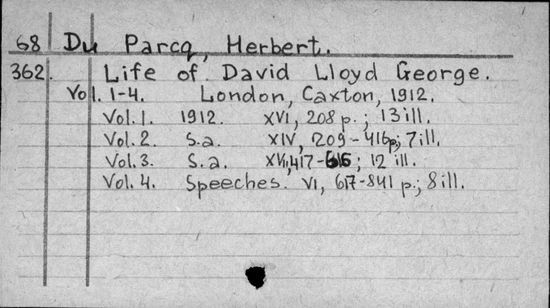 68 Du Parcq, Herbert.
362. Life of David Lloyd George.
Vol. 1-4. London, Caxton, 1912.
Vol. 1. 1912. XVI, 208 p.; 13 ill.
Vol. 2. S.a. XIV, 209-416 p; 7 ill.
Vol. 3. S.a. 417-616; 12 ill.
Vol. 4. Speeches. VI, 617-841 p.; 8 ill.